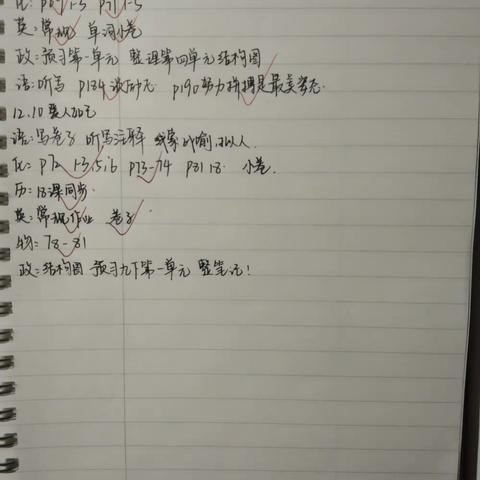 化: p69 1-5 p71 1-5
英: 常规 单词小卷
政: 预习第一单元 整理第四单元结构图
语: 听写 p184 p190努力拼搏是最美姿态.
12.10
语: 写卷子 听写注释 比喻, 拟人.
化: p72 1-3,5,6 p73-74 p81 18. 小卷.
历: 18课同步.
英: 常规作业 卷子.
物: 78-81
政: 结构图 预习九下第一单元 整笔记!